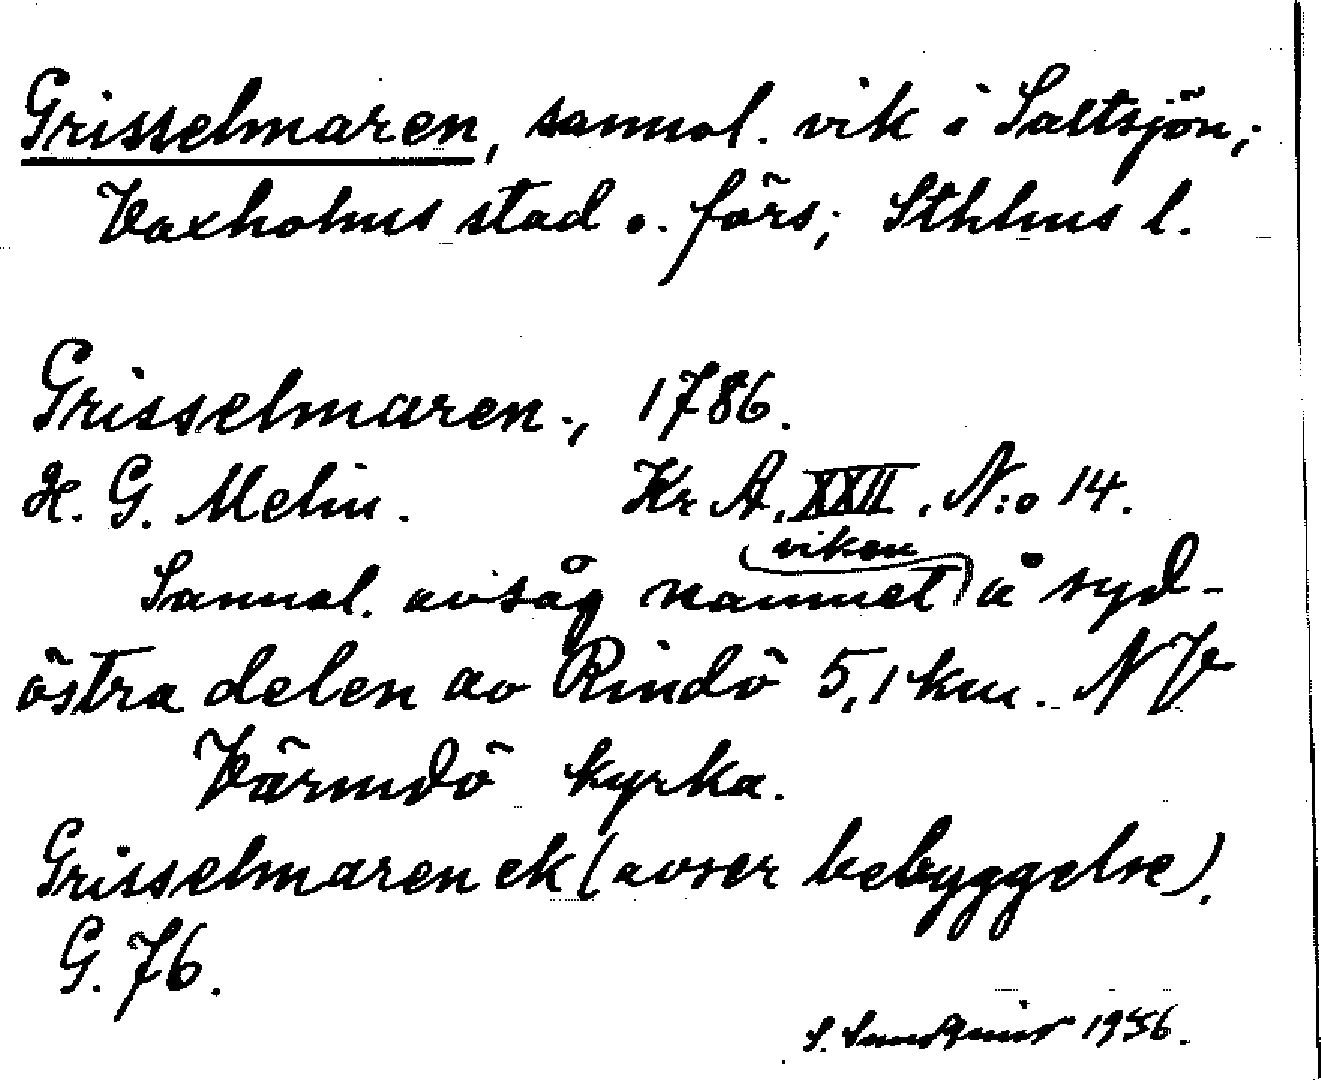 Grisselmaren, sannol. vik i Saltsjön;
Vaxholms stad o. förs; Sthlms l.
Grisselmaren., 1786.
H. G. Melin. Kr A. XXII. N:o 14.
viken
Sannol. avsåg namnet å syd-
östra delen av Rindö 5,1 km. NV
Värmdö kyrka.
Grisselmaren ek (avser bebyggelse).
G. 76.
S. Sundquist 1956.